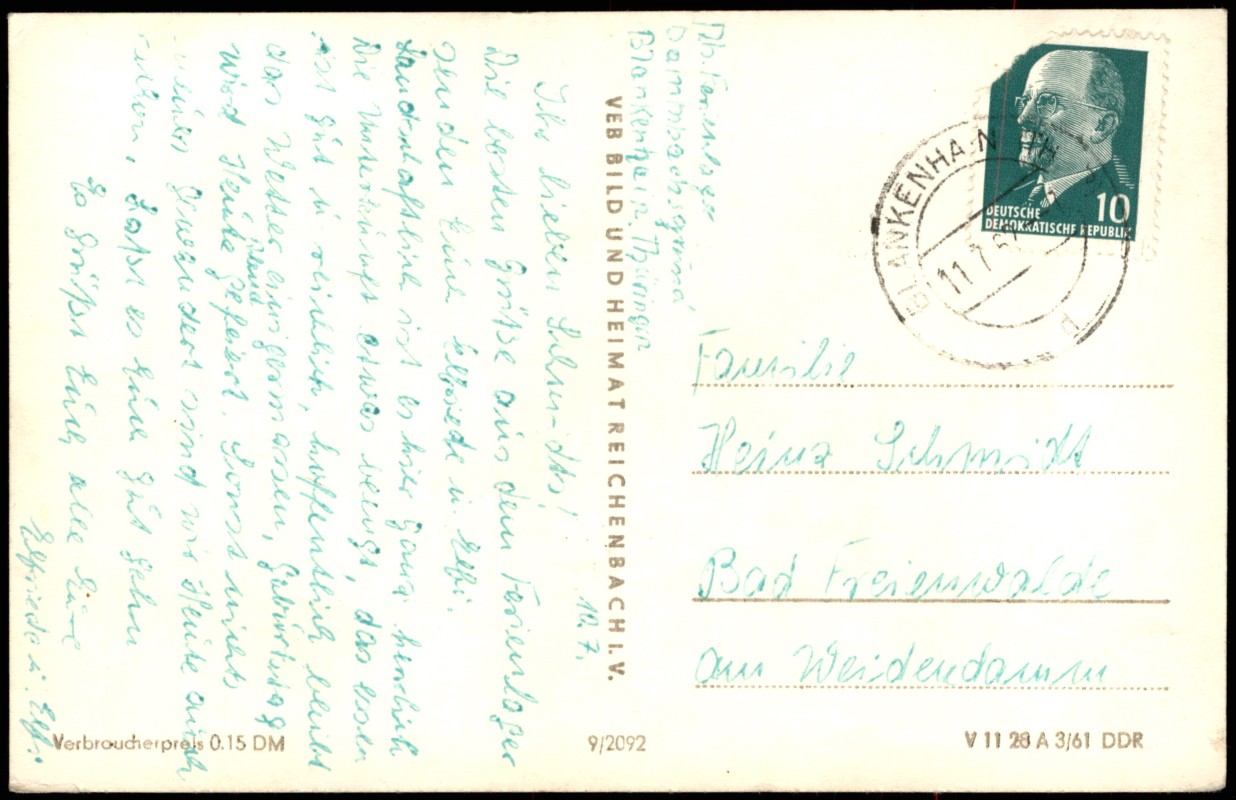 10.7.
Ihr lieben Schmidts!
Die besten Grüße aus dem Ferienlager
senden Euch Elfriede u. Elfi.
Landschaftlich ist es hier ganz herrlich
Die Unterkunft etwas weniger, das essen
ist gut u reichlich, hoffentlich bleibt
das Wetter einigermassen, Geburtstag
wird Heute Abend gefeiert. Sonst nichts
neues Gewandert sind wir Heute auch
schon. Lasst es Euch gut gehn
Es Grüßt Euch alle Eure
Elfriede u. Elfi
VEB BILD UND HEIMAT REICHENBACH I. V.
Ferienlager
Dammbachsgrund
Blankenhain. Thüringen
BLANKENHAIN
11.7.6
DEUTSCHE
DEMOKRATISCHE REPUBLIK
10
Familie
Heinz Schmidt
Bad Freienwalde
am Weidendamm
Verbraucherpreis 0.15 DM
9/2092
V 11 28 A 3/61 DDR